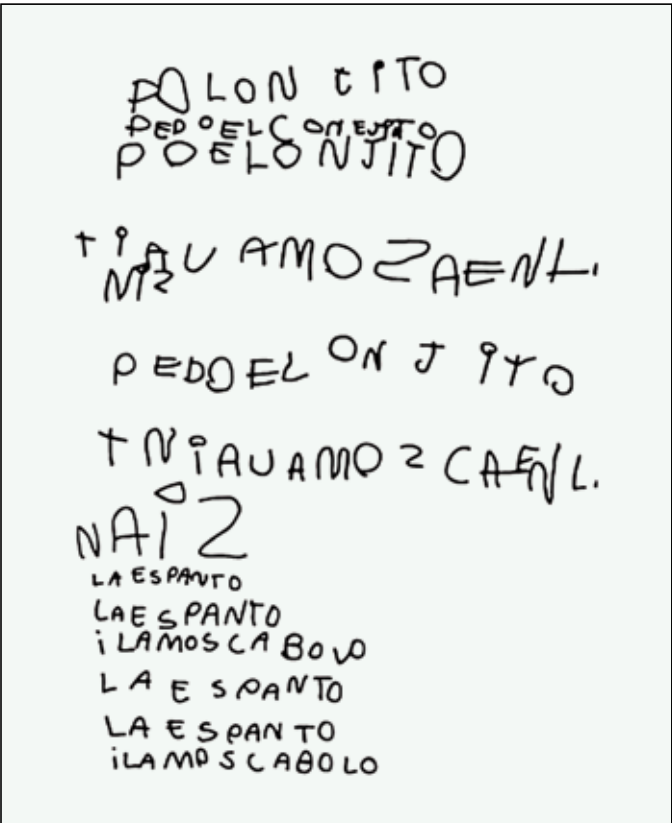 POLON CITO
PEDOELCONEJITO
POELONJITO
TIAU AMOZAENL.
NIZ
PEDOELON JITO
TNIAUAMOZCAENL.
NAIZ
LAESPANTO
LAESPANTO
iLAMOSCABOLO
LAESPANTO
LAESPANTO
iLAMOSCABOLO